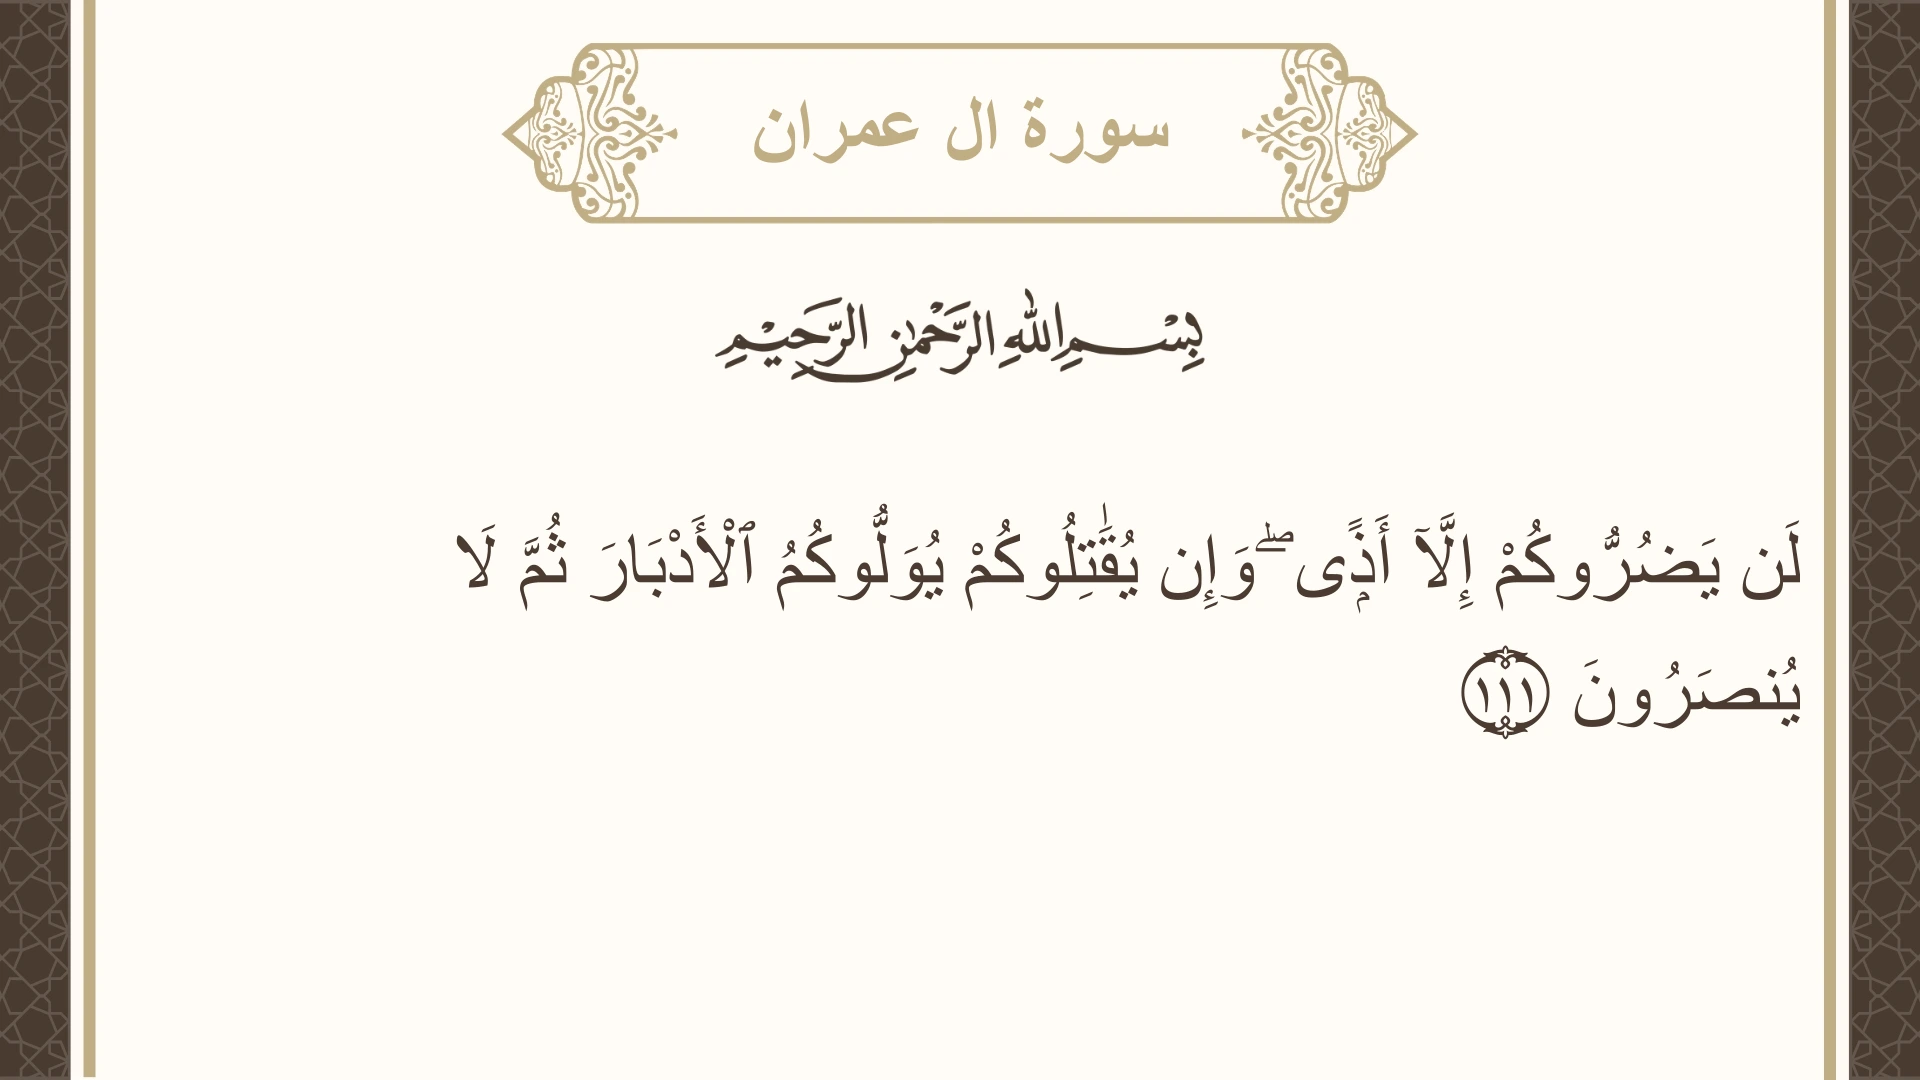 سورة ال عمران
بِسْمِ اللهِ الرَّحْمٰنِ الرَّحِيْمِ
لَن يَضُرُّوكُمْ إِلَّآ أَذًۭى ۖ وَإِن يُقَٰتِلُوكُمْ يُوَلُّوكُمُ ٱلْأَدْبَارَ ثُمَّ لَا
يُنصَرُونَ ١١١